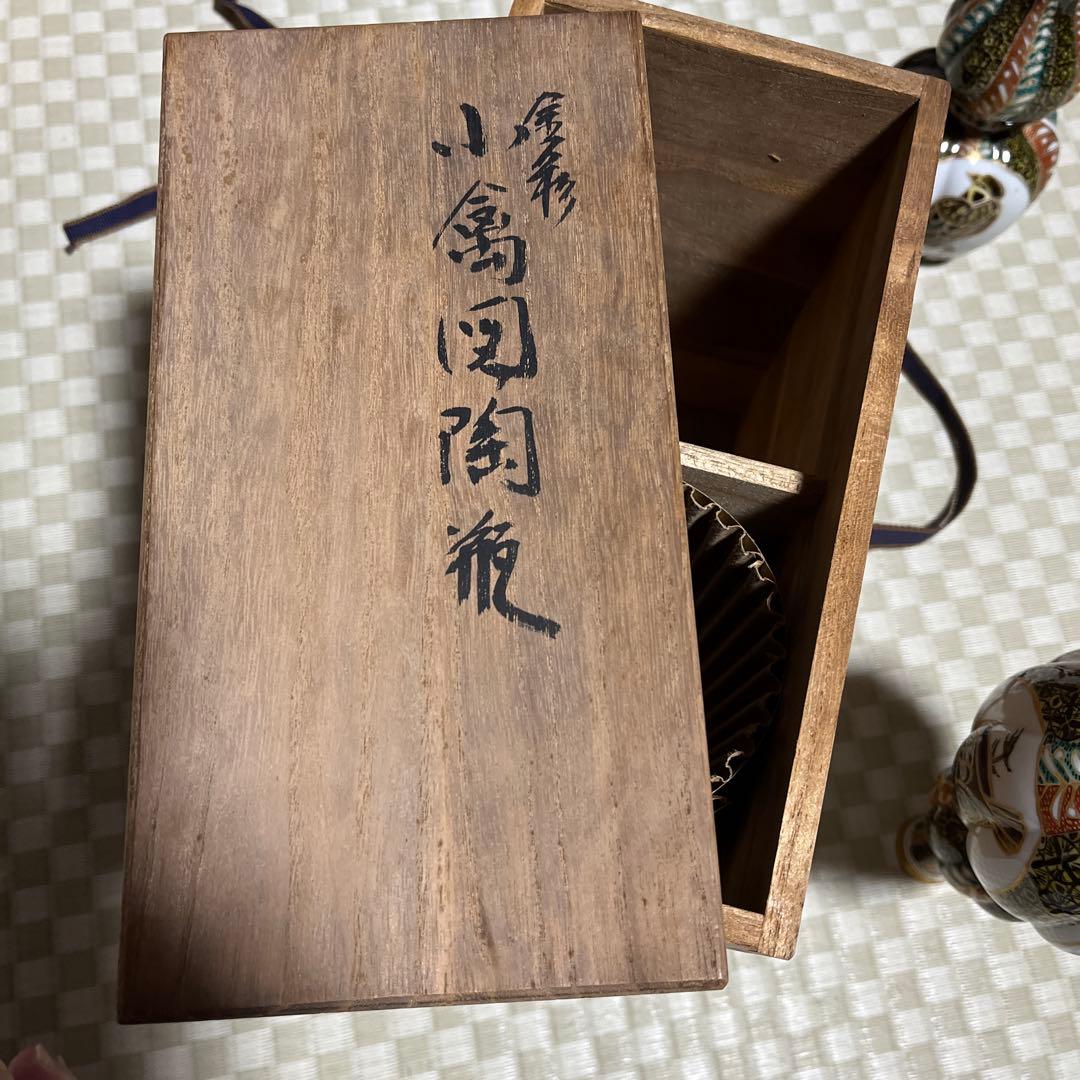 金彩
小禽図陶瓶